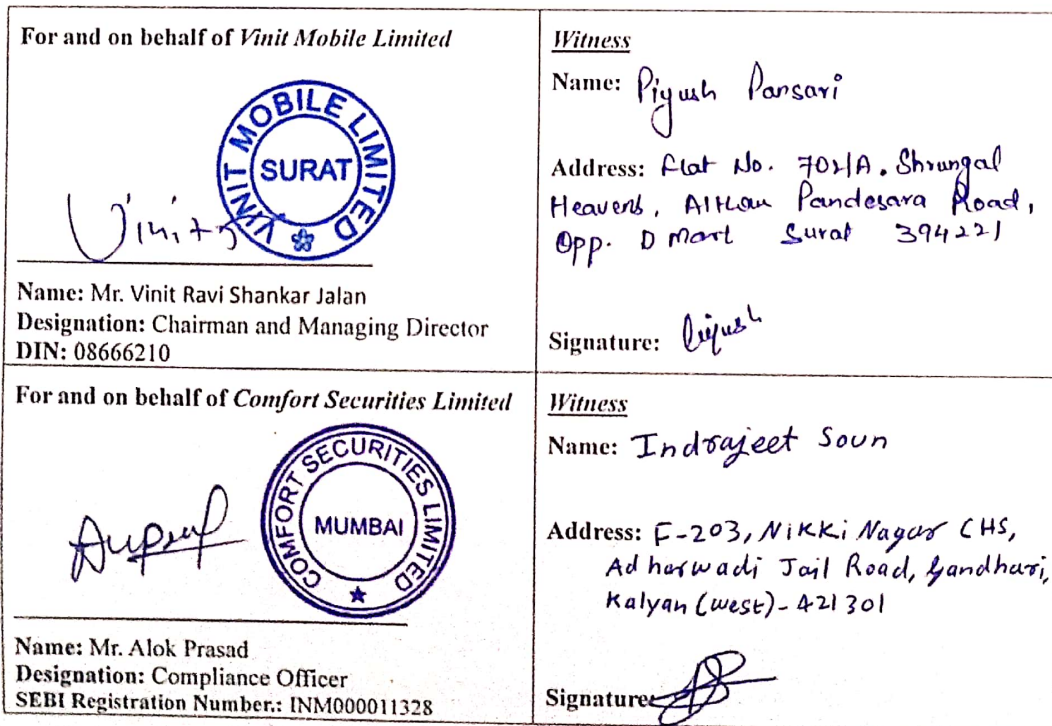 For and on behalf of Vinit Mobile Limited
VINIT MOBILE LIMITED
SURAT
Name: Mr. Vinit Ravi Shankar Jalan
Designation: Chairman and Managing Director
DIN: 08666210
Witness
Name: Piyush Pansari
Address: Flat No. 702/A. Shrungal
Heavens, Althan Pandesara Road,
Opp. D Mart Surat 394221
Signature: Piyush
For and on behalf of Comfort Securities Limited
COMFORT SECURITIES LIMITED
MUMBAI
Name: Mr. Alok Prasad
Designation: Compliance Officer
SEBI Registration Number.: INM000011328
Witness
Name: Indrajeet Soun
Address: F-203, Nikki Nagar CHS,
Adharwadi Jail Road, Gandhari,
Kalyan (west)- 421301
Signature: